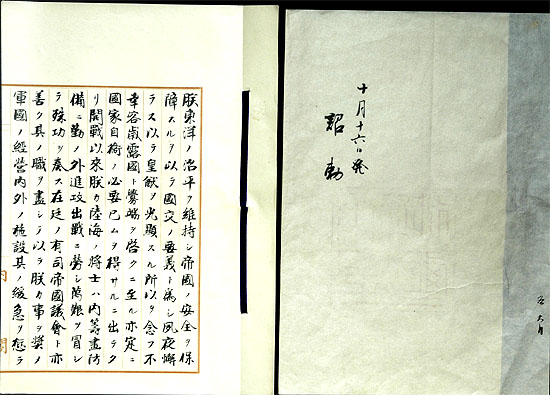 十月十六日発
詔勅
朕東洋ノ治平ヲ維持シ帝國ノ安全ヲ保
障スルヲ以テ國交ノ要義ト為シ夙夜懈
ラス以テ皇猷ヲ光顯スル所以ヲ念フ不
幸客歳露國ト釁端ヲ啓クニ至ル亦寔ニ
國家自衛ノ必要已ムヲ得サルニ出テタ
リ開戰以來朕カ陸海ノ將士ハ内籌畫防
備ニ勤メ外進攻出戰ニ勞シ萬艱ヲ冒シ
テ殊功ヲ奏ス在廷ノ有司帝國議會ト亦
善ク其ノ職ヲ盡シテ以テ朕カ事ヲ奨メ
軍國ノ經營内外ノ施設其ノ緩急ヲ愆ラ